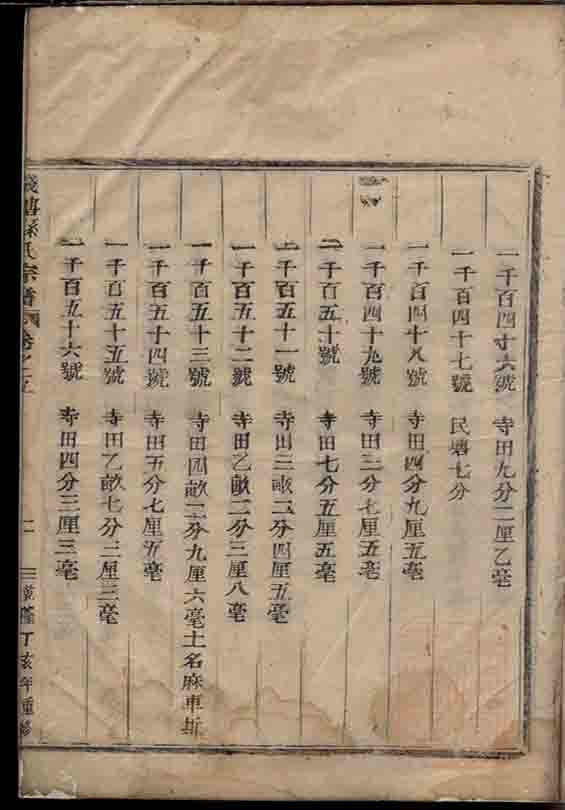 一千百四十六號 寺田九分二厘乙毫
一千百四十七號 民地七分
一千百四十八號 寺田四分九厘五毫
一千百四十九號 寺田三分七厘五毫
一千百五十號 寺田七分五厘五毫
一千百五十一號 寺田三畝二分四厘五毫
一千百五十二號 寺田乙畝二分三厘八毫
一千百五十三號 寺田四畝二分九厘六毫土名麻車圻
一千百五十四號 寺田五分七厘五毫
一千百五十五號 寺田乙畝七分二厘三毫
一千百五十六號 寺田四分三厘三毫
孫氏宗譜 卷之五
二 丁亥年重修